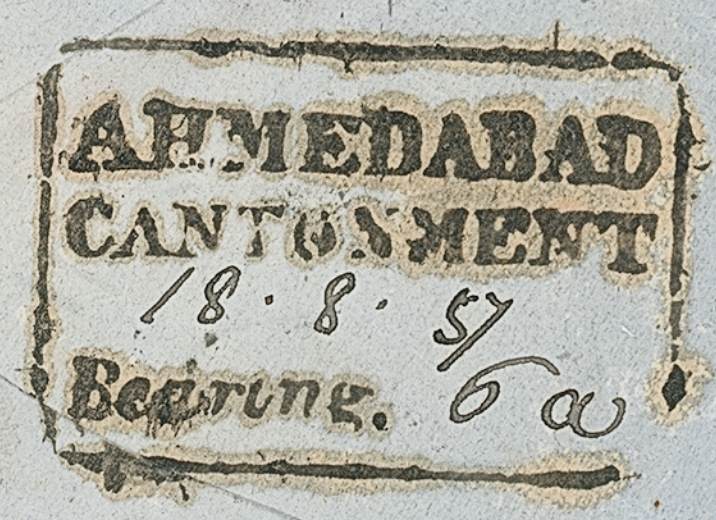 AHMEDABAD
CANTONMENT
18 . 8 . 57
Bearing. 6 a